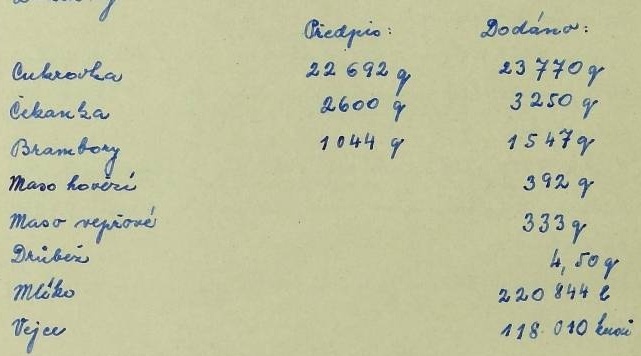 Předpis: Dodáno:
Cukrovka 22 692 q 23 770 q
Čekanka 2600 q 3250 q
Brambory 1044 q 1547 q
Maso hovězí 392 q
Maso vepřové 333 q
Drůbež 4,50 q
Mléko 220 844 l
Vejce 118.010 kusů